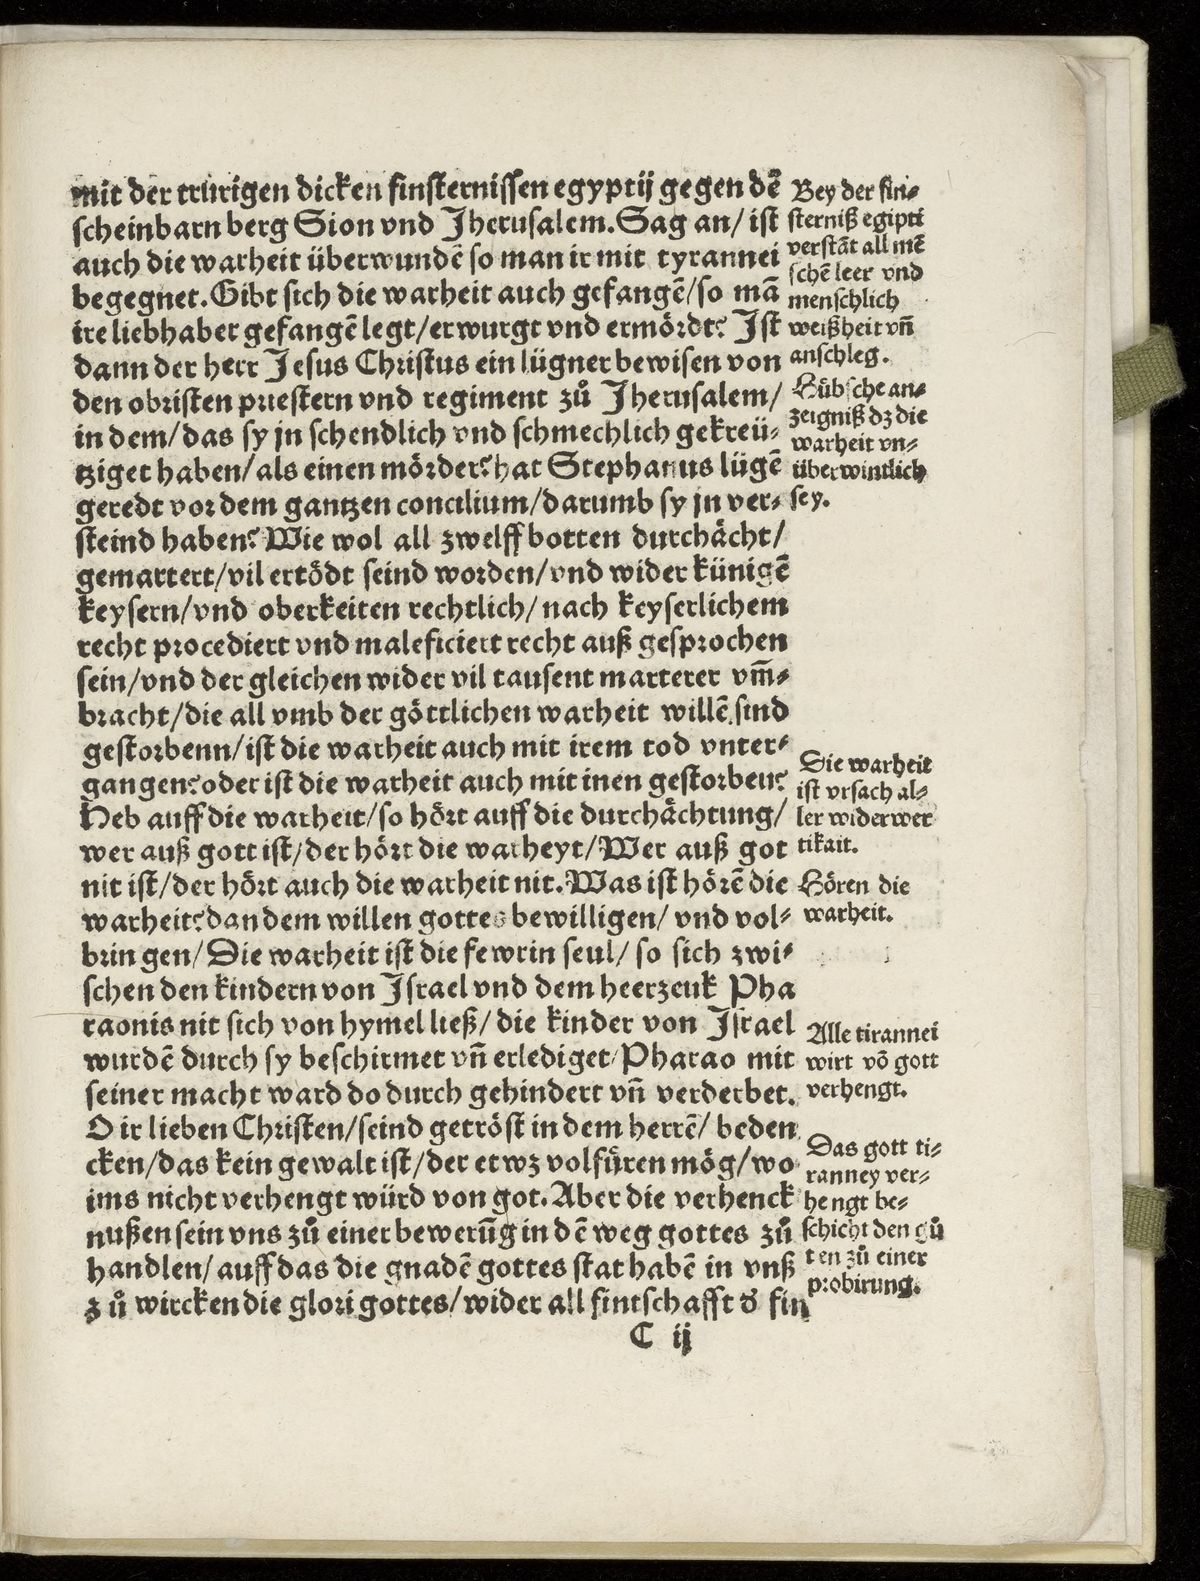 mit der trurigen dicken finsternissen egyptij gegen dē
scheinbarn berg Sion vnd Jherusalem. Sag an/ ist
auch die warheit überwundē so man ir mit tyrannei
begegnet. Gibt sich die warheit auch gefangē/so mā
ire liebhaber gefangē legt/erwurgt vnd ermördt? Jst
dann der herr Jesus Christus ein lügner bewisen von
den obristen priestern vnd regiment zů Jherusalem/
in dem/das sy jn schendlich vnd schmechlich gekreü⸗
tziget haben/als einen mörder? hat Stephanus lügē
geredt vor dem gantzen concilium/darumb sy jn ver⸗
steind haben? Wie wol all zwelff botten durchächt/
gemartert/vil ertödt seind worden/vnd wider künigē
keysern/vnd oberkeiten rechtlich/nach keyserlichem
recht procediert vnd maleficiert recht auß gesprochen
sein/vnd der gleichen wider vil tausent marterer vm̄⸗
bracht/die all vmb der göttlichen warheit willē sind
gestorbenn/ist die warheit auch mit irem tod vnter⸗
gangen? oder ist die warheit auch mit inen gestorben?
Heb auff die warheit/so hört auff die durchächtung/
wer auß gott ist/der hört die warheyt/Wer auß got
nit ist/der hört auch die warheit nit. Was ist hörē die
warheit? dan dem willen gottes bewilligen/ vnd vol⸗
bringen/Die warheit ist die fewrin seul/ so sich zwi⸗
schen den kindern von Jsrael vnd dem heerzeuk Pha
raonis nit sich von hymel ließ/ die kinder von Jsrael
wurdē durch sy beschirmet vn̄ erlediget/Pharao mit
seiner macht ward do durch gehindert vn̄ verderbet.
O ir lieben Christen/seind getröst in dem herrē/ beden
cken/das kein gewalt ist/der etwz volfüren mög/wo
ims nicht verhengt würd von got. Aber die verhenck
nußen sein vns zů einer bewerūg in dē weg gottes zů
handlen/auff das die gnadē gottes stat habē in vnß
zů wircken die glori gottes/wider all fintschafft đ fin
C ij
Bey der fin⸗
sterniß egipti
verstāt all mē
schē leer vnd
menschlich
weißheit vn̄
anschleg.
Hübsche an⸗
zeigniß dz die
warheit vn⸗
überwintlich
sey.
Die warheit
ist vrsach al⸗
ler widerwer
tikait.
Hören die
warheit.
Alle tirannei
wirt vō gott
verhengt.
Das gott ti⸗
ranney ver⸗
hengt be⸗
schicht den gů
ten zů einer
probirung.